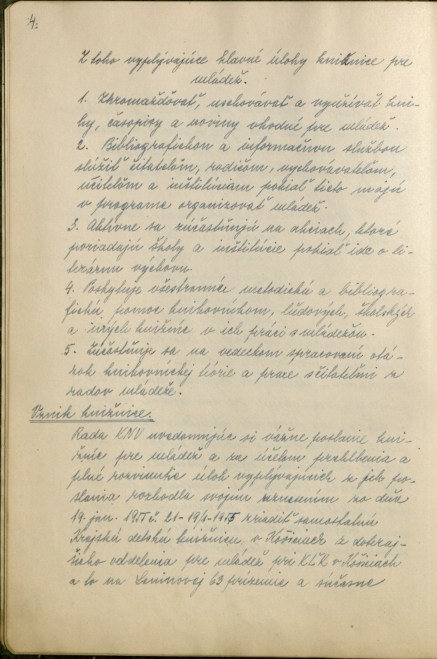 4.
Z toho vyplývajúce hlavné úlohy knižnice pre
mládež.
1. Zhromažďovať, uschovávať a využívať kni-
hy, časopisy a noviny vhodné pre mládež.
2. Bibliografickou a informačnou službou
slúžiť čitateľom, rodičom, vychovávateľom,
učiteľom a inštitúciam pokiaľ tieto majú
v programe organizovať mládež.
3. Aktívne sa zúčastňujú na akciach, ktoré
poriadajú školy a inštitúcie pokiaľ ide o li-
terárnu výchovu.
4. Poskytuje všestrannú metodickú a bibliogra-
fickú pomoc knihovníkom, ľudových, školských
a iných knižníc v ich práci s mládežou.
5. Zúčastňuje sa na vedeckom spracovaní otá-
zok knihovníckej teórie a praxe s čitateľmi z
radov mládeže.
Vznik knižnice.
Rada KNV uvedomujúc si vážne poslanie kni-
žnice pre mládež a za účelom prehĺbenia a
plné rozvinutie úloh vyplývajúcich z jej po-
slania rozhodla svojim uznesením zo dňa
19. jan. 1955 č. 21-19/I-1955 zriadiť samostatnú
Krajskú detskú knižnicu v Košiciach z doteraj-
šieho oddelenia pre mládež pri KĽK v Košiciach
a to na Leninovej 63 prízemie a súčasne